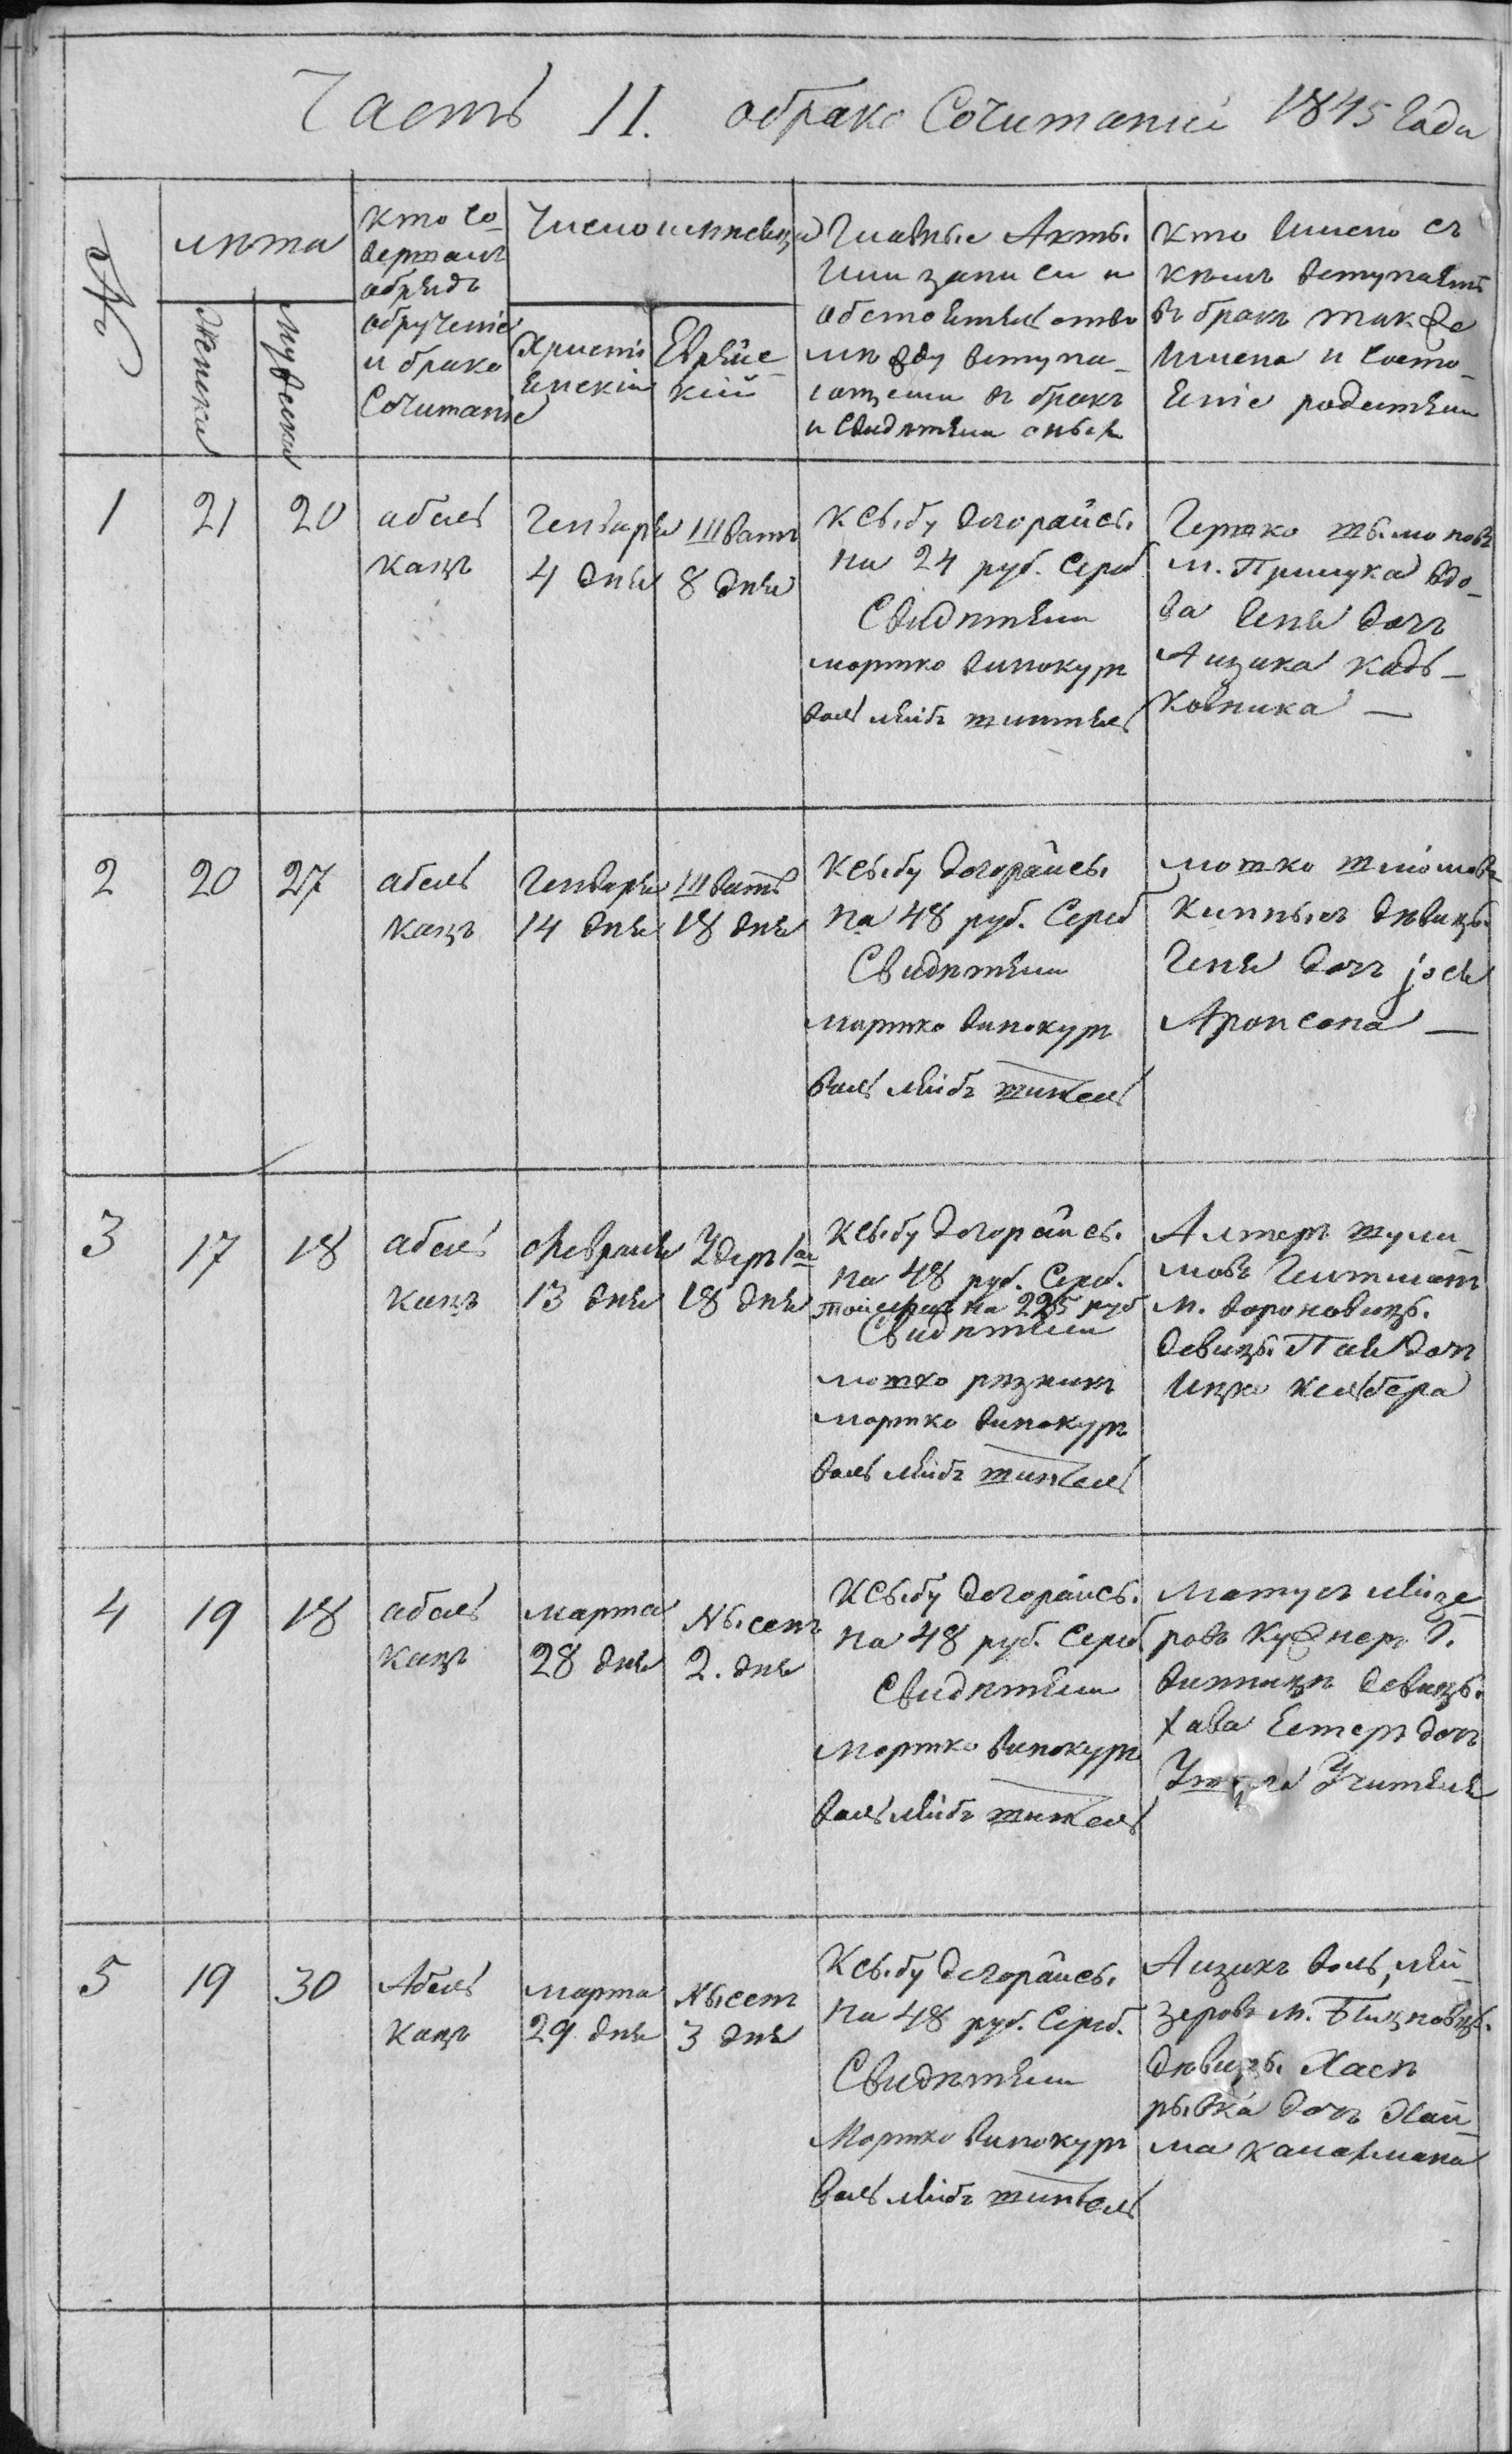 Часть II. о брако Сочитании 1845 Года
№
лѣта
Женски
Мужески
кто со-
вершалъ
обрядъ
обручение
и брако
Сочитание
Число и мѣсяцъ
Христі
янскій
Еврейс-
кій
Главные Акты.
или записи и
обстоятельство
мѣжду вступа-
ющеми въ бракъ
и Свидѣтели оныхъ
кто имено съ
кѣмъ вступаетъ
въ бракъ также
имена и состо-
яние родители
1
21
20
абель
кацъ
Генваря
4 дня
Шватъ
8 дня
Ксыбу догорайсы.
на 24 руб. Сереб
Свидѣтели
мортко винокуръ
воль лейбъ
Гершко
м. вдо-
ва Геня дочь
Аизика кадь-
ковника —
2
20
27
абель
кацъ
Генваря
14 дня
Шватъ
18 дня
Ксыбу догорайсы.
на 48 руб. Сереб
Свидѣтели
мортко винокуръ
воль лейбъ
мошко
дѣвицы.
Геня дочь іося
Аронсона —
3
17
18
абель
кацъ
Февраля
13 дня
Удеръ 1го
18 дня
Ксыбу догорайсы.
на 48 руб. Сереб.
на 225 руб
Свидѣтели
мошко рѣзникъ
мортко винокуръ
воль лейбъ
Алтеръ шули-
мовъ
м. вороновицы.
девицы. Пая дочь
Ицко
4
19
18
абель
кацъ
марта
28 дня
Нысенъ
2. дня
Ксыбу догорайсы.
на 48 руб. Сереб
Свидѣтели
Мортко винокуръ
воль лейбъ
Матусъ лейзе-
ровъ Кушнеръ Г.
винницы девицы.
хава Естеръ дочь
Учителя
5
19
30
Абель
кацъ
марта
29 дня
Нысенъ
3 дня
Ксыбу догорайсы.
на 48 руб. Сереб.
Свидѣтели
Мортко винокуръ
воль лейбъ
Аизикъ воль, лей-
зеровъ м.
дѣвицы. Хася
рывка дочь Хаи-
ма